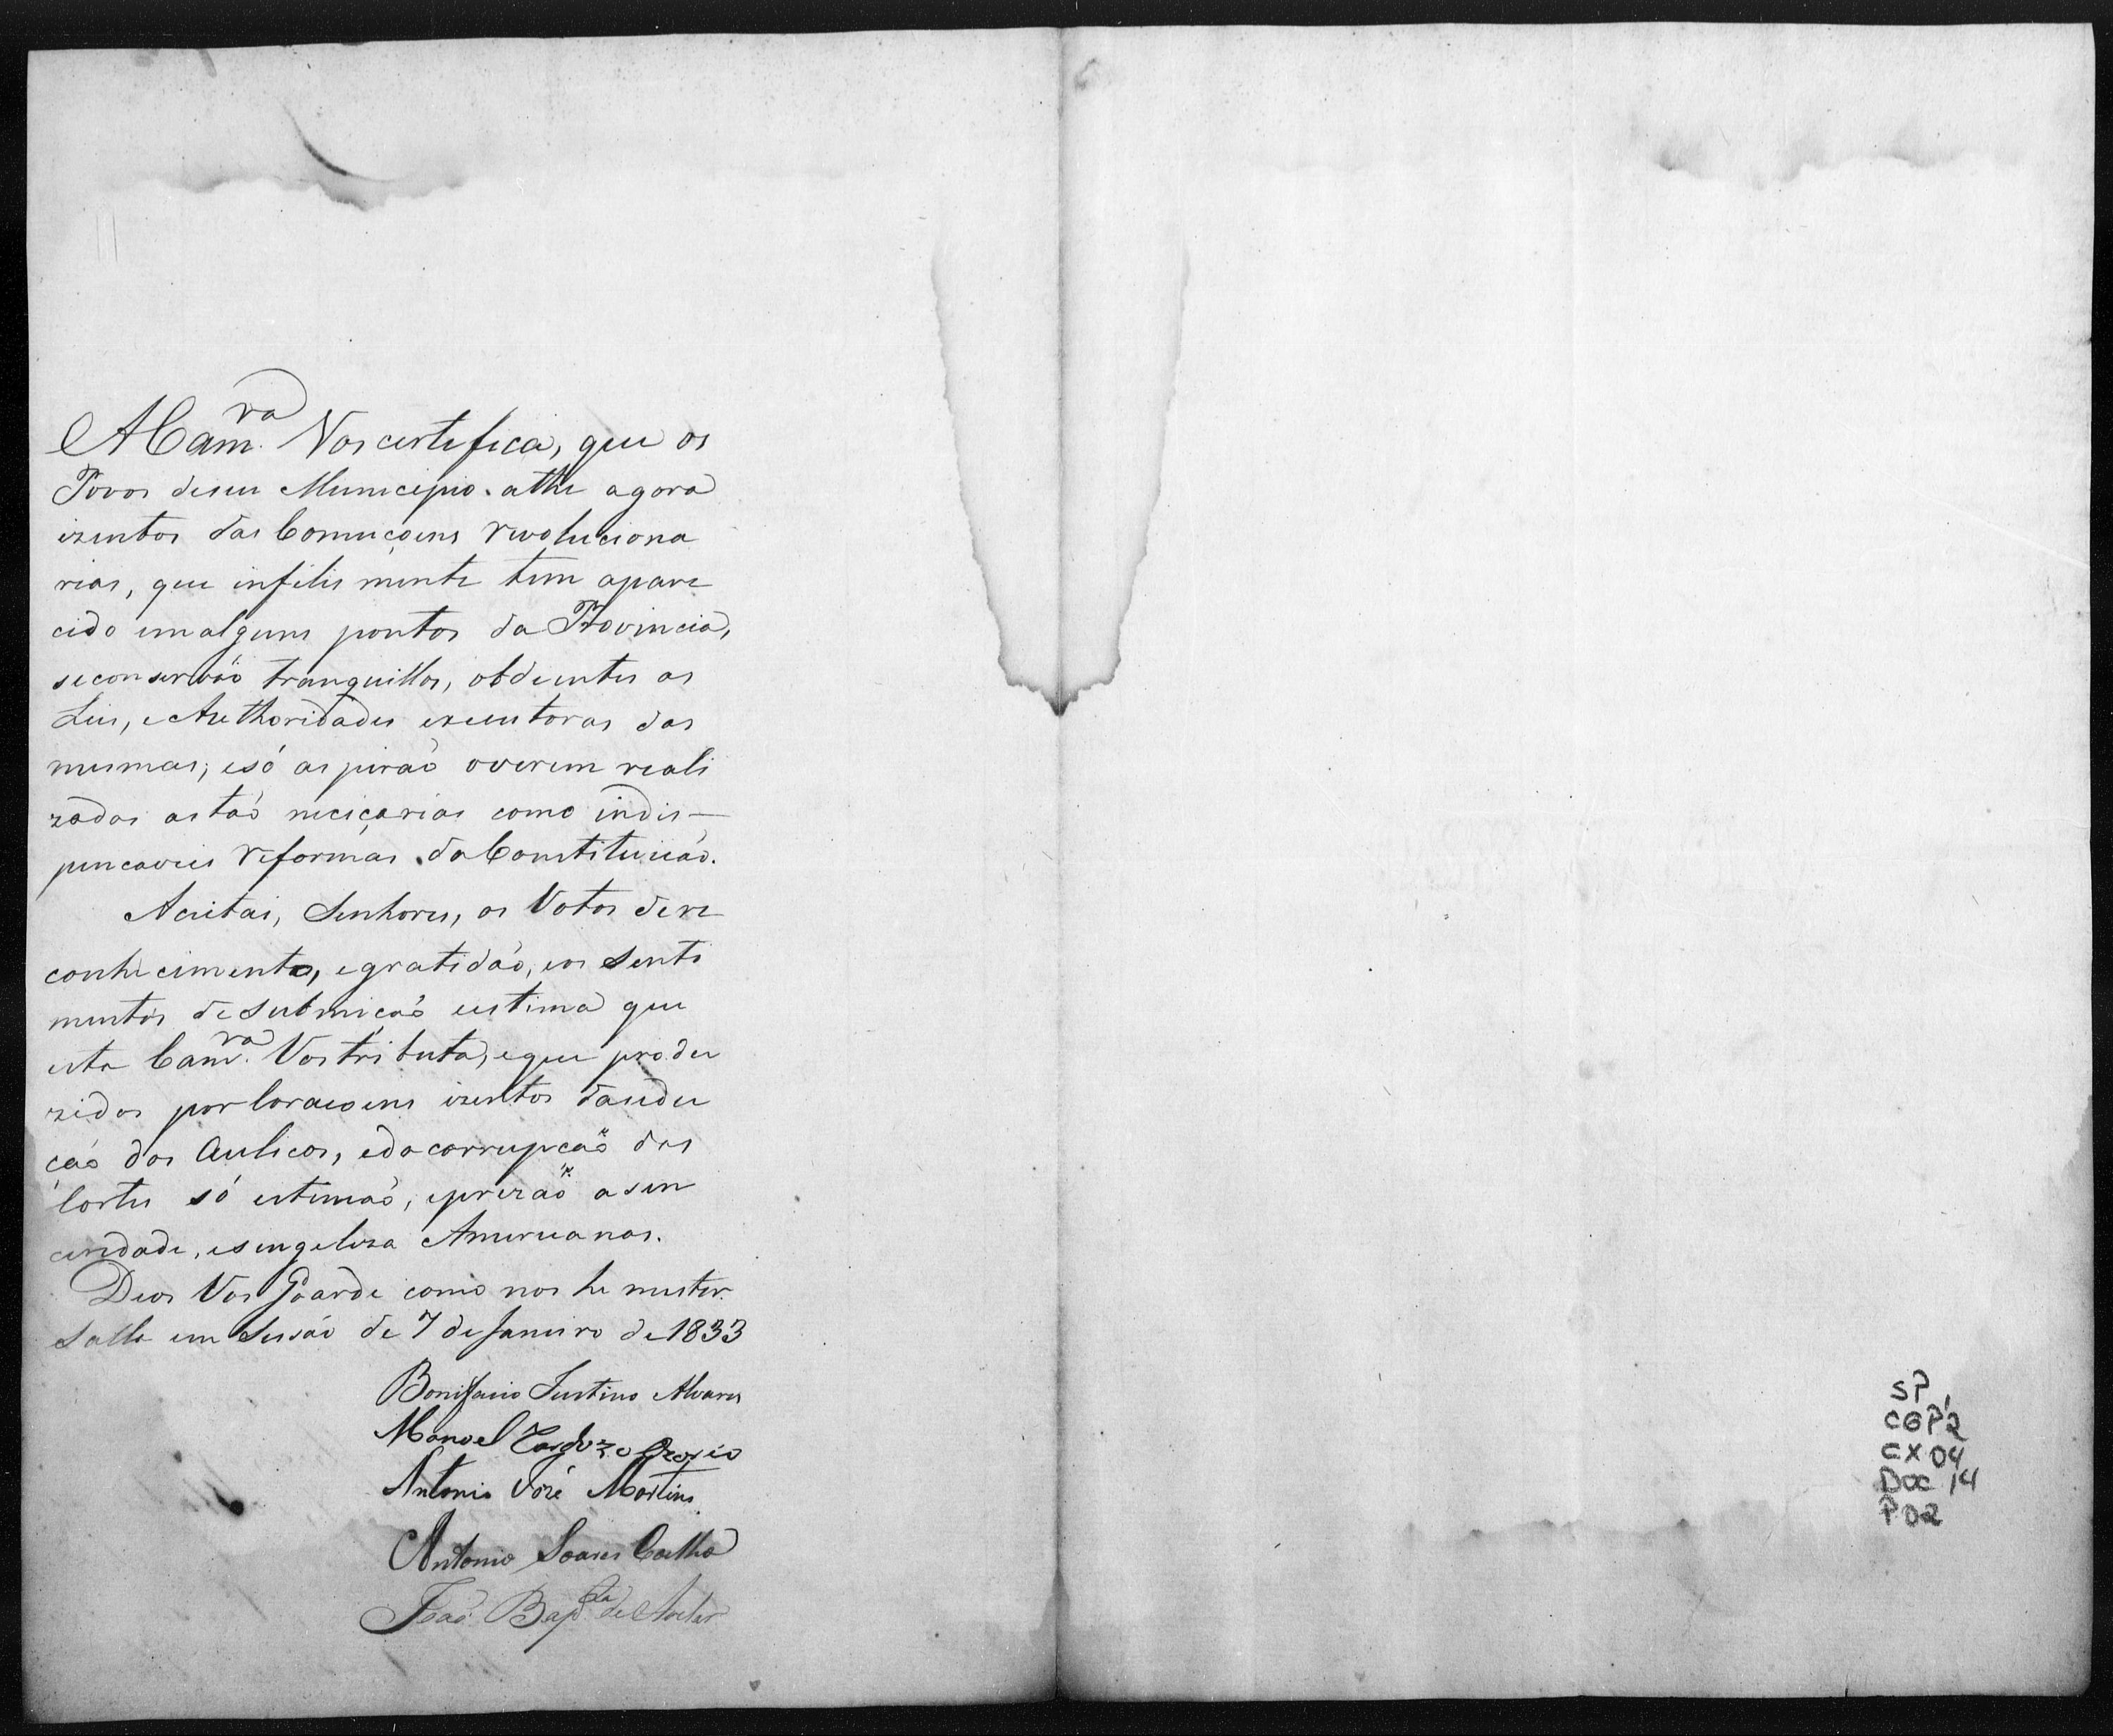 A Cam.ra Vos certefica, que os
Povos deseu Municipio athe agora
izentos das Comuçoens revoluciona
rias, que infelis mente tem apare
cido emalguns pontos da Provincia,
seconservão tranquillos, obdientes as
Leis, e Authoridades executoras das
mesmas; esó aspirão overem reali
zadas astaõ neciçarias como indis-
pençaveis reformas da Constituicaõ.
Aceitai, Senhores, os Votos dere
conhecimento, egratidaõ, eos senti
mentos desubmiçaõ eestima que
esta Cam.ra Vostributa, eque produ
zidos porCoraçoens izentos daedu
çaõ dos Aulicos, edacorrupcaõ das
Cortes só estimaõ, eprezaõ asin
ceridade, esingeleza Americanas.
Deos Vos Goarde como nos he mister.
Salla em Sessaõ de 7 de Janeiro de 1833
Bonifacio Justino Alvares
Manoel Cardozo Ozorio
Antonio José Martins
Antonio Soares Coelho
Joaõ Bap.ta de
SP
CGP2
CX 04
Doc 14
P02